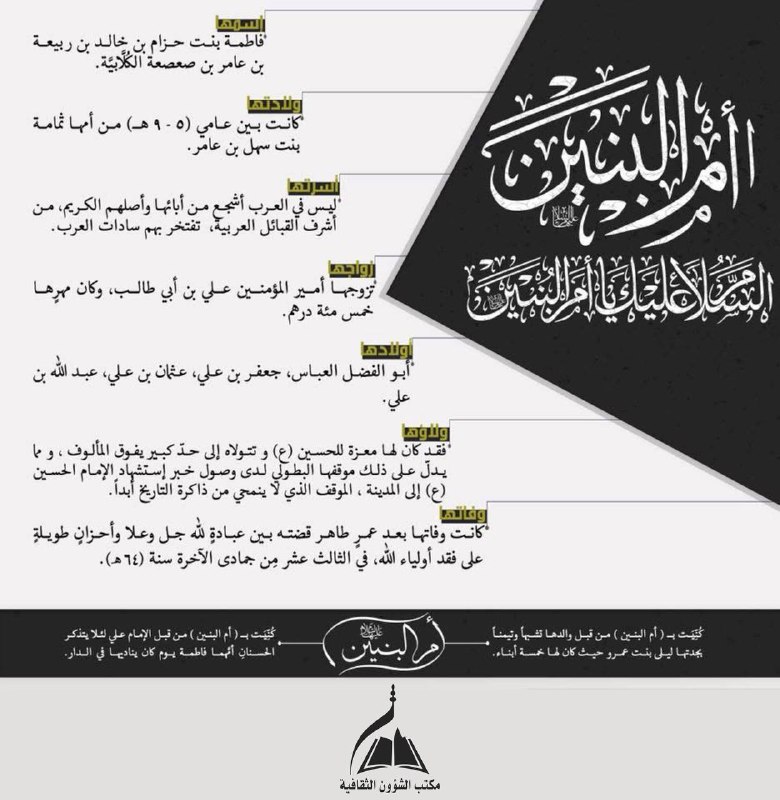 أم البنين
السلام عليك يا أم البنين
إسمها
فاطمة بنت حزام بن خالد بن ربيعة
بن عامر بن صعصعة الكُلَّابيَّة.
ولادتها
كانت بين عامي (٥ - ٩ هـ) من أمها ثمامة
بنت سهل بن عامر.
أسرتها
ليس في العرب أشجع من أبائها وأصلهم الكريم، من
أشرف القبائل العربية، تفتخر بهم سادات العرب.
زواجها
تزوجها أمير المؤمنين علي بن أبي طالب، وكان مهرها
خمس مئة درهم.
أولادها
أبو الفضل العباس، جعفر بن علي، عثمان بن علي، عبد الله بن
علي.
ولاؤها
فقد كان لها معزة للحسين (ع) و تتولاه إلى حدّ كبير يفوق المألوف ، و مما
يدلّ على ذلك موقفها البطولي لدى وصول خبر إستشهاد الإمام الحسين
(ع) إلى المدينة ، الموقف الذي لا ينمحي من ذاكرة التاريخ أبداً.
وفاتها
كانت وفاتها بعد عمرٍ طاهر قضته بين عبادةٍ لله جل وعلا وأحزانٍ طويلةٍ
على فقد أولياء الله، في الثالث عشر مِن جمادى الآخرة سنة (٦٤هـ).
كُنّيَت بـ ( أم البنين ) من قبل والدها تشبهاً وتيمناً
بجدتها ليلى بنت عمرو حيث كان لها خمسة أبناء.
أم البنين
كُنّيَت بـ ( أم البنين ) من قبل الإمام علي لئلا يتذكر
الحسنانِ أمّهما فاطمة يوم كان يناديها في الدار.
مكتب الشؤون الثقافية